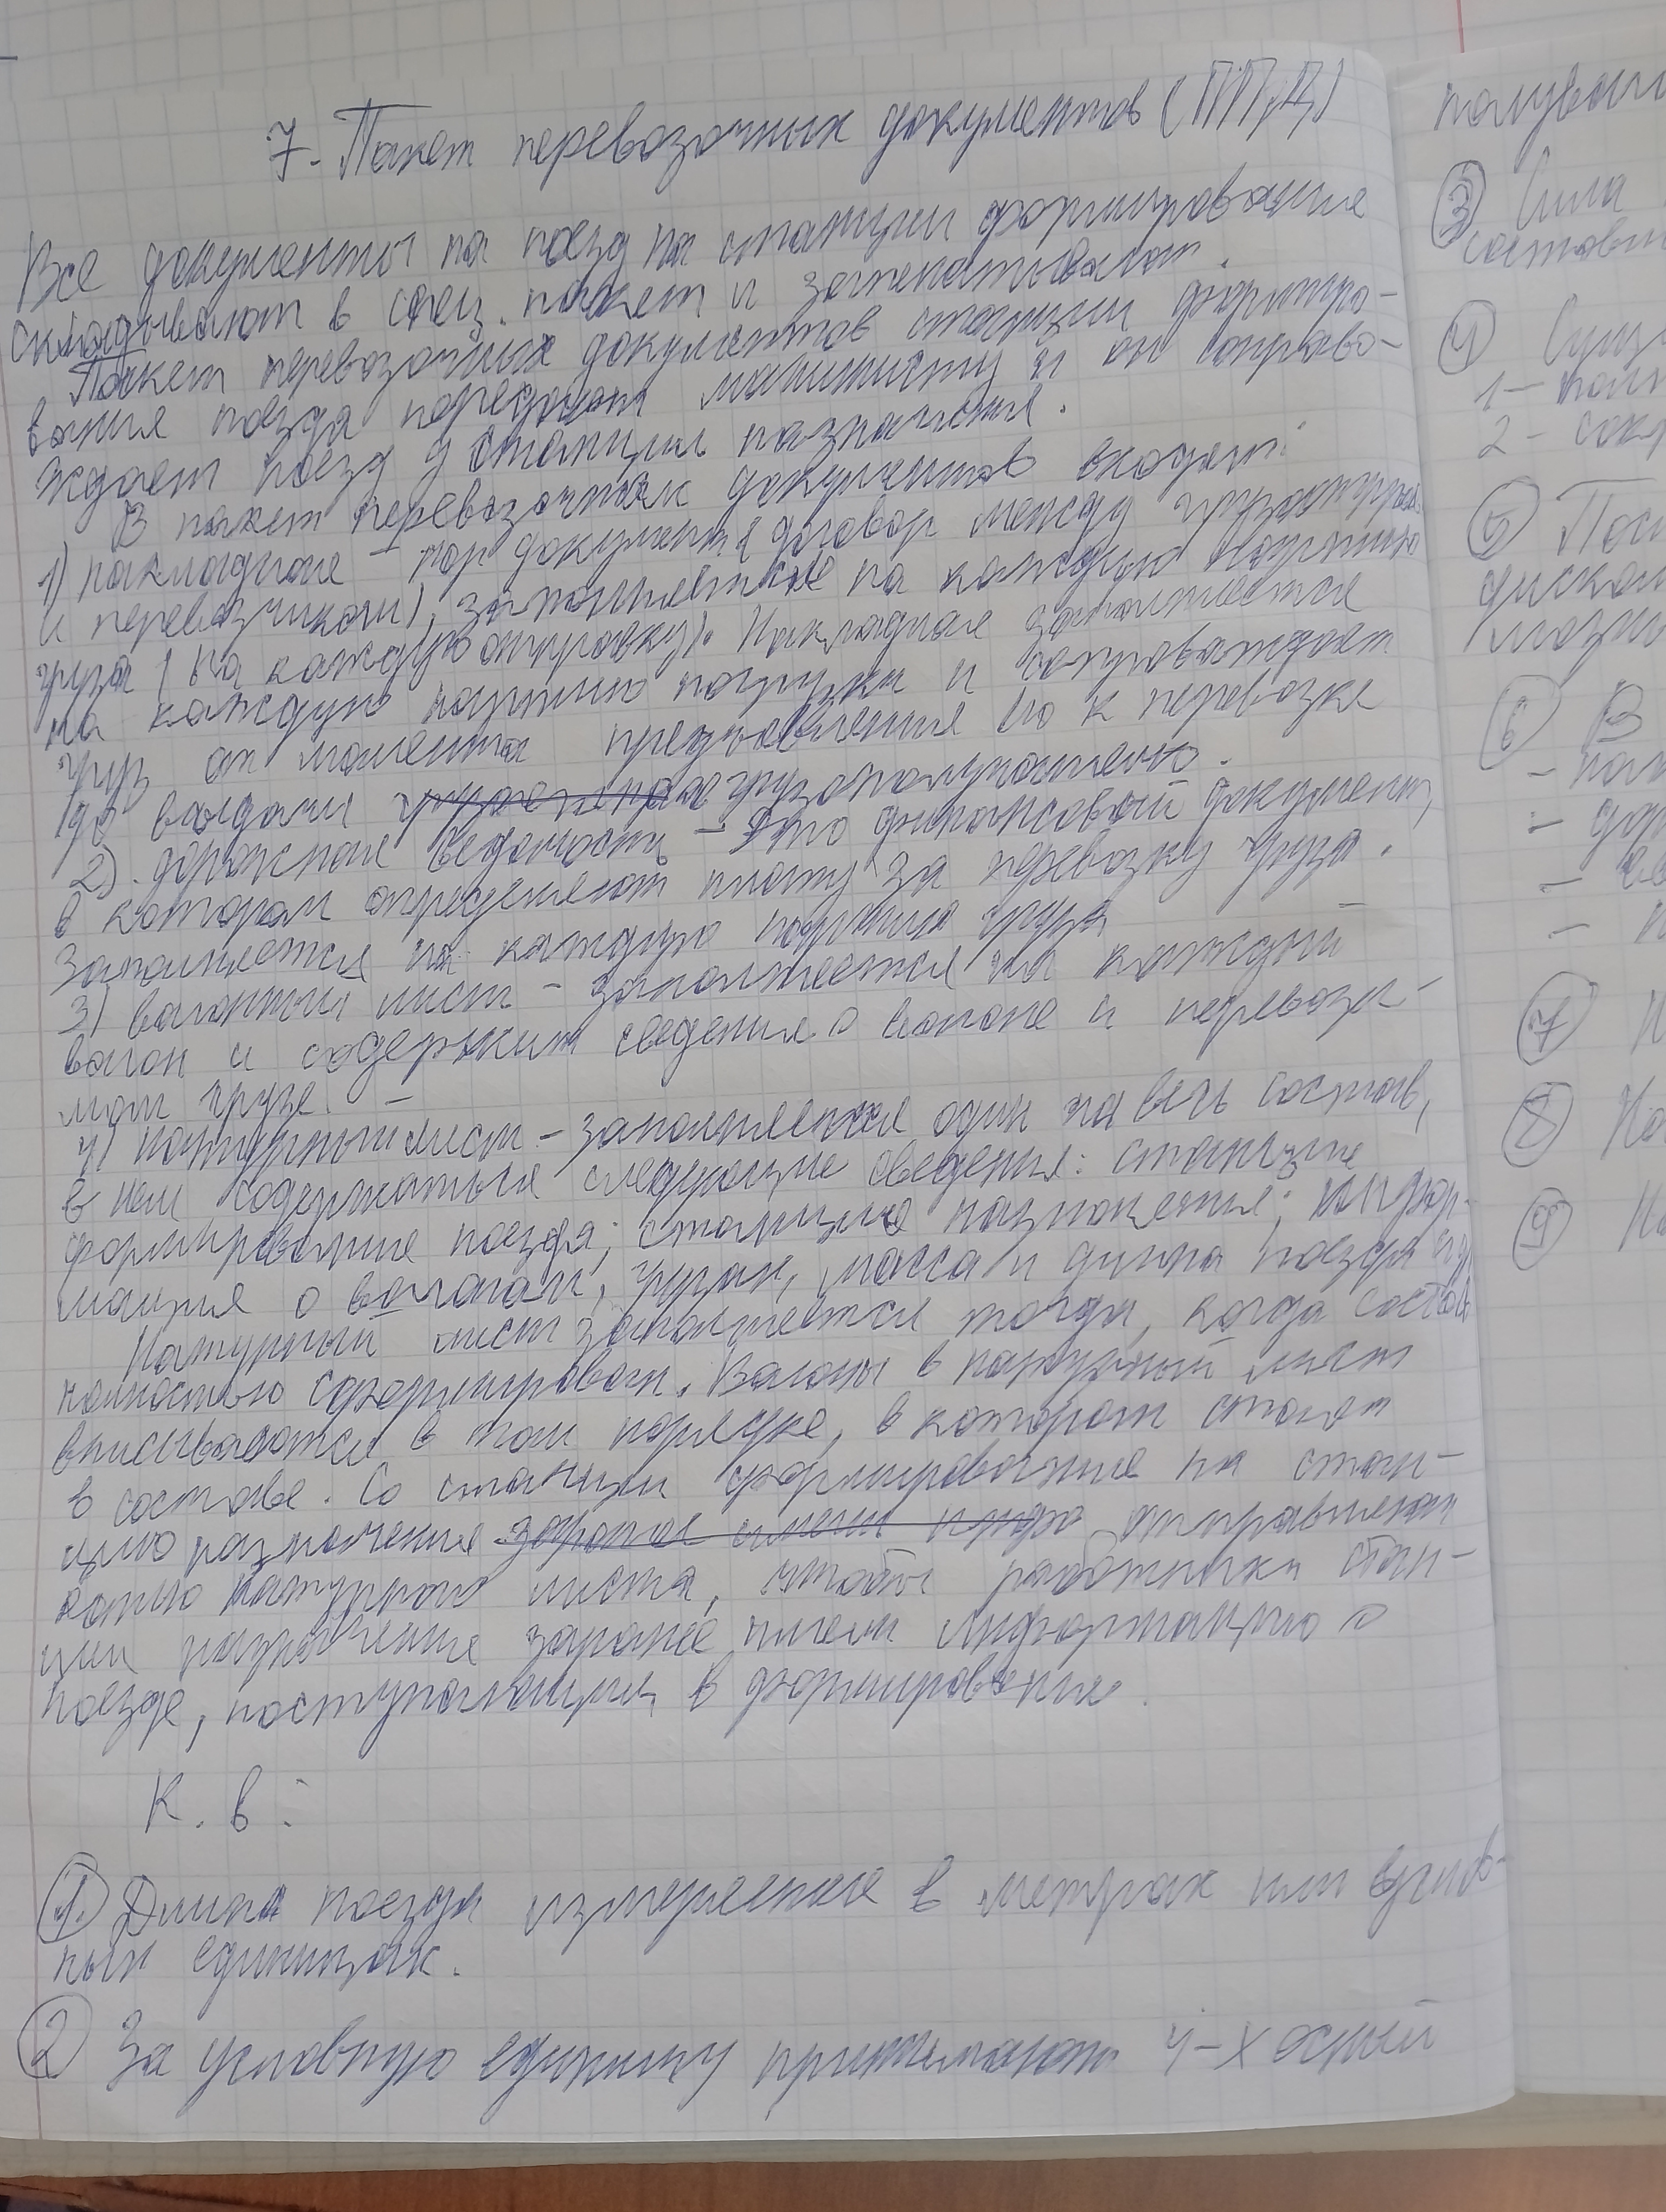 7. Пакет перевозочных документов (ППД)
Все документы на поезд на станции формирования
складывают в спец. пакет и запечатывают.
Пакет перевозочных документов станции формиро-
вания поезда передают машинисту и он сопрово-
ждает поезд до станции назначения.
В пакет перевозочных документов входят:
1) накладная – документ (договор между
и перевозчиком), заполняется на каждую партию
груза (на каждую отправку). Накладная заполняется
на каждую партию погрузки и сопровождает
груз от момента предъявления его к перевозке
до выдачи грузополучателю.
2). дорожная ведомость – это финансовый документ,
в котором определяют плату за перевозку груза.
Заполняется на каждую партию груза
3) вагонный лист – заполняется на каждый
вагон и содержит сведения о вагоне и перевози-
мом грузе.
4) натурный лист – заполняется один на весь состав,
в нем содержаться следующие сведения: станция
формирование поезда; станция назначения; инфор-
мация о вагонах, грузах, масса и длина поезда
Натурный лист заполняется тогда, когда состав
полностью сформирован. Вагоны в натурный лист
вписываются в том порядке, в котором стоят
в составе. Со станции формирование на стан-
цию назначения отправляют
копию натурного листа, чтобы работники стан-
ции назначения заранее имели информацию о
поезде, поступающим в формирование.
К. в:
1. Длина поезда измеряется в метрах или услов-
ных единицах.
2 За условную единицу принимают 4-х осный
полуваг
3 Сила
состав
4
1 –
2 –
5
6 В
–
–
–
–
7 Н
8 На
9 На